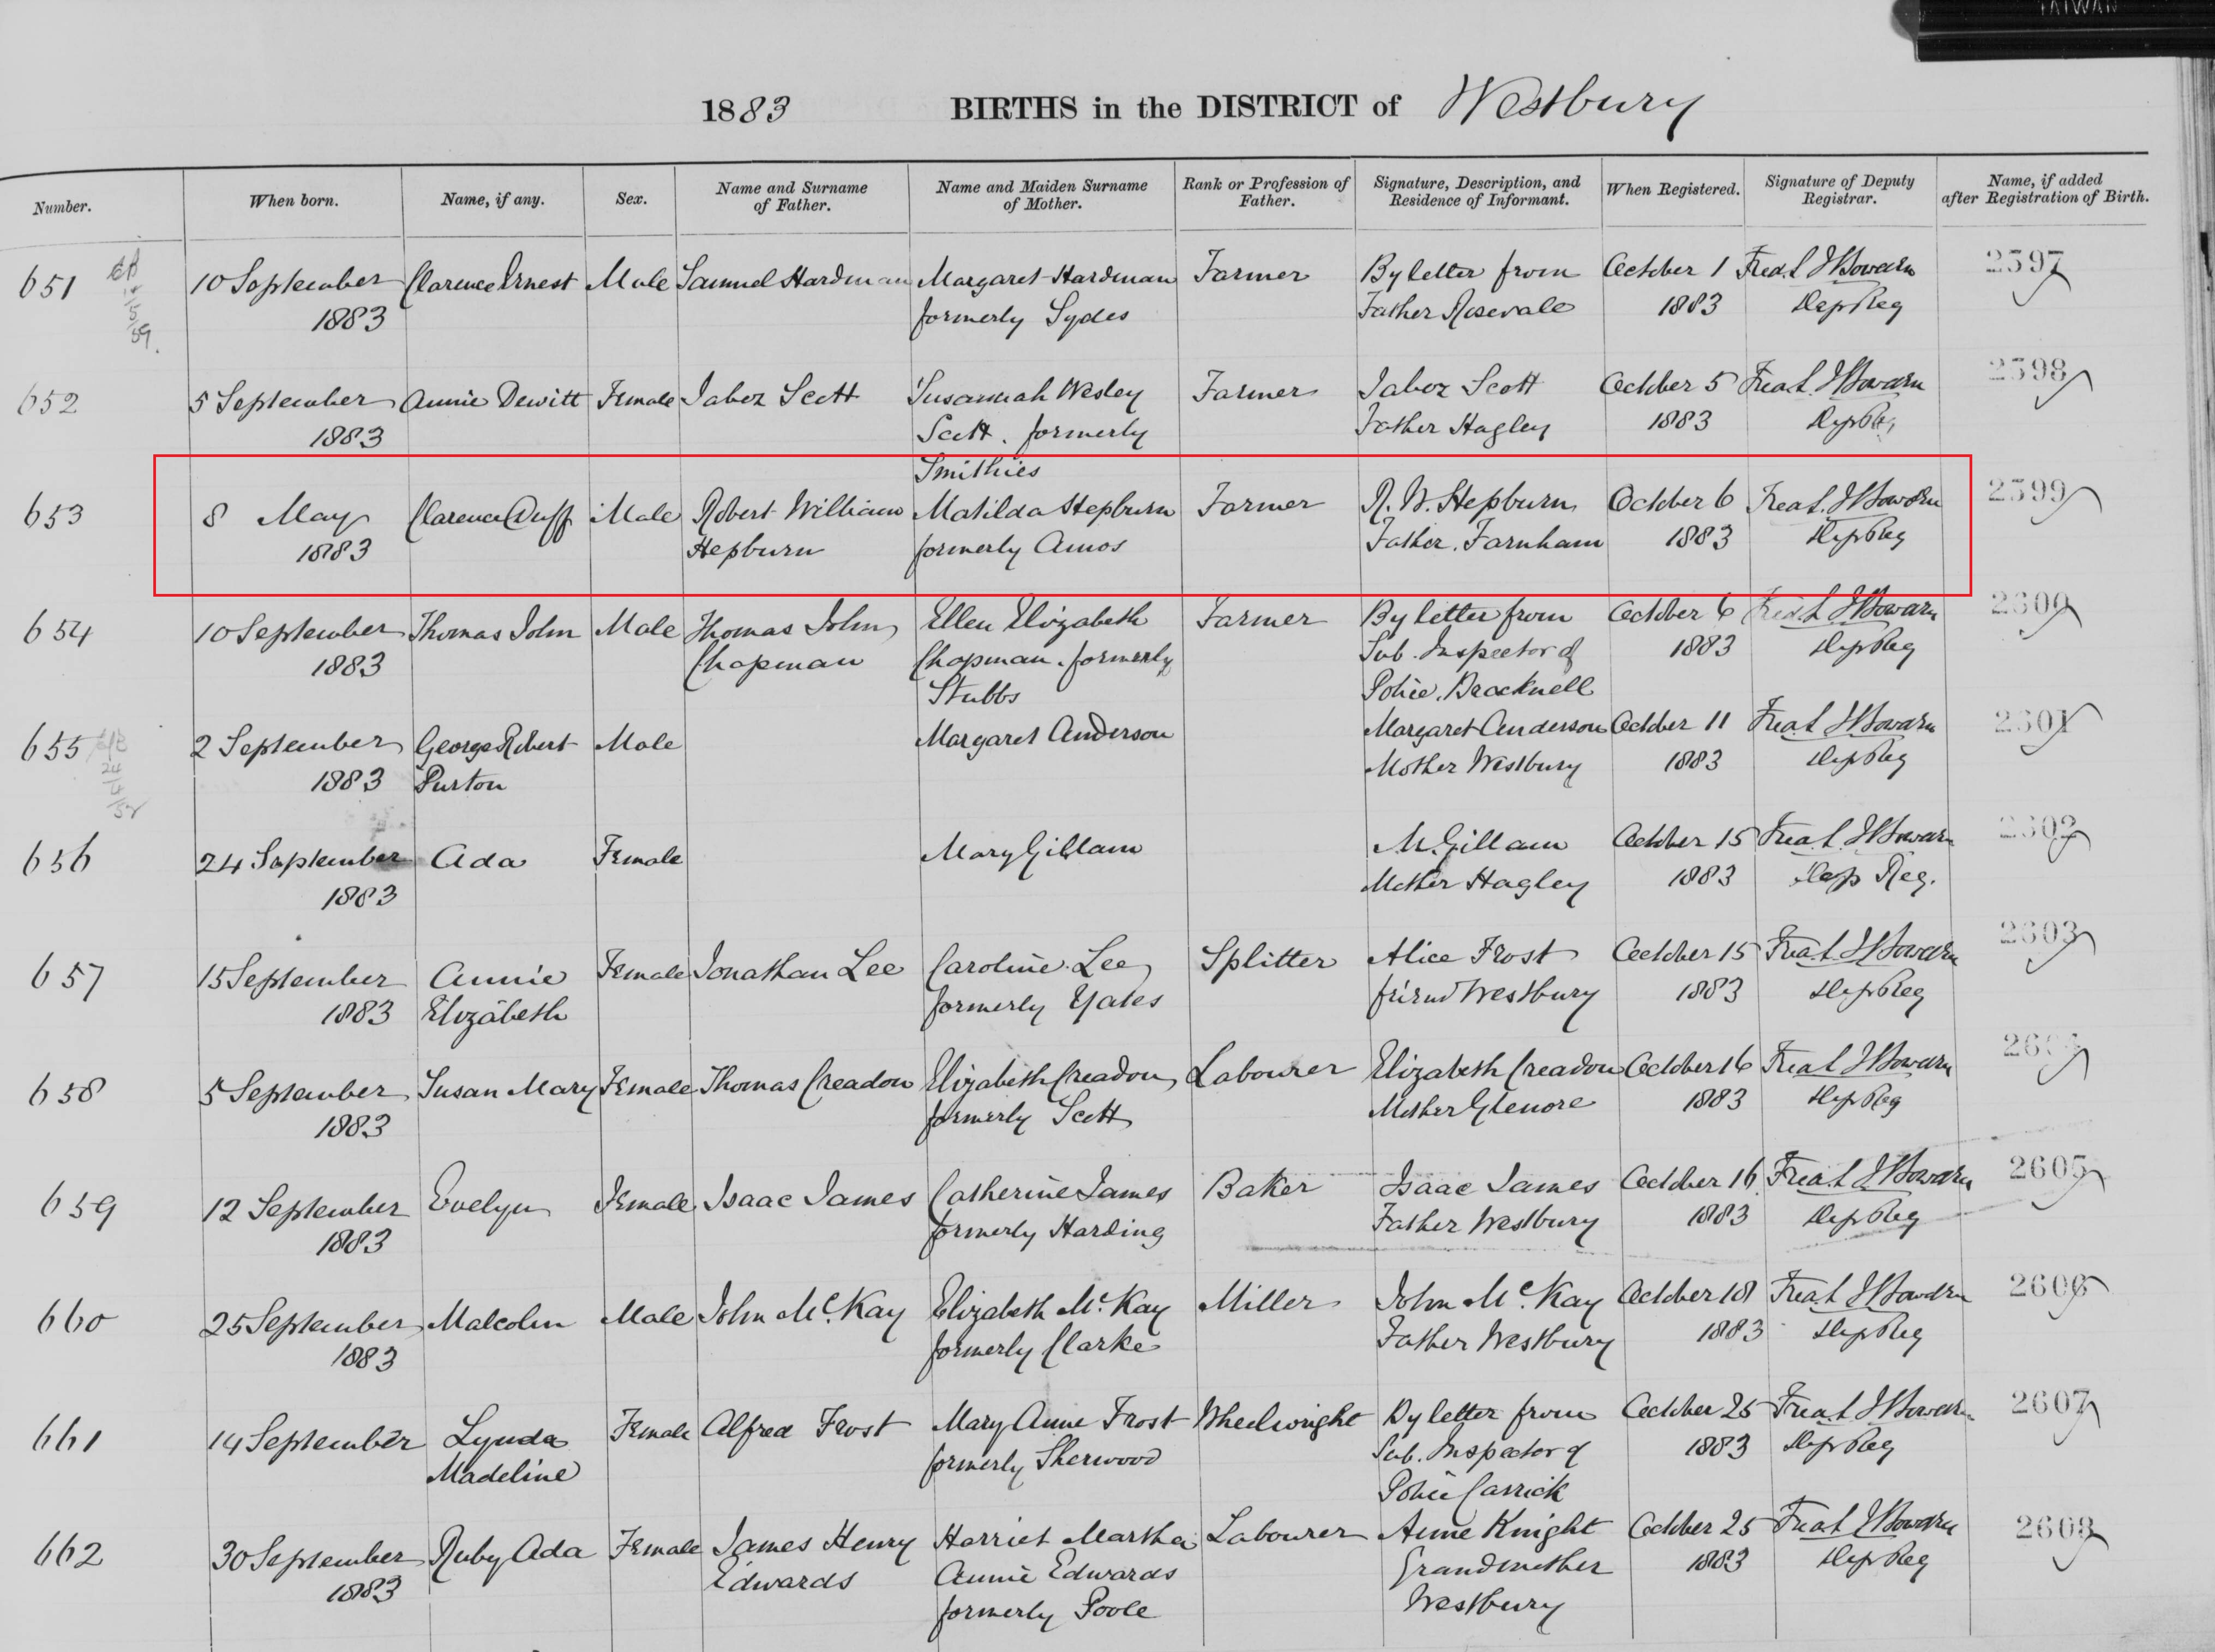 TAIWAN
1883 BIRTHS in the DISTRICT of Westbury
Number. When born. Name, if any. Sex. Name and Surname of Father. Name and Maiden Surname of Mother. Rank or Profession of Father. Signature, Description, and Residence of Informant. When Registered. Signature of Deputy Registrar. Name, if added after Registration of Birth.
651 10 September Clarence Ernest Male Samuel Hardman Margaret Hardman Farmer By letter from October 1 2597
1883 formerly Sydes Father Rosevale 1883 Dep Reg
652 5 September Annie Dewitt Female Jabez Scott Susannah Wesley Farmer Jabez Scott October 5 2598
1883 Scott. formerly Father Hagley 1883
Smithies
653 8 May Clarence Duff Male Robert William Matilda Hepburn Farmer R. W. Hepburn October 6 2599
1883 Hepburn formerly Amos Father. Farnham 1883 Dep Reg
654 10 September Thomas John Male Thomas John Ellen Elizabeth Farmer By letter from October 6 2600
1883 Chapman Chapman. formerly Sub. Inspector of 1883 Dep Reg
Stubbs Police. Bracknell
655 2 September George Robert Male Margaret Anderson Margaret Anderson October 11 2601
1883 Purton Mother Westbury 1883 Dep Reg
656 24 September Ada Female Mary Gillam M. Gillam October 15 2602
1883 Mother Hagley 1883 Dep Reg.
657 15 September Annie Female Jonathan Lee Caroline Lee Splitter Alice Frost October 15 2603
1883 Elizabeth formerly Yates friend Westbury 1883 Dep Reg
658 5 September Susan Mary Female Thomas Creadon Elizabeth Creadon Labourer Elizabeth Creadon October 16
1883 formerly Scott Mother Glenore 1883 Dep Reg
659 12 September Evelyn Female Isaac James Catherine James Baker Isaac James October 16 2605
1883 formerly Harding Father Westbury 1883 Dep Reg
660 25 September Malcolm Male John McKay Elizabeth McKay Miller John McKay October 18 2606
1883 formerly Clarke Father Westbury 1883 Dep Reg
661 14 September Lynda Female Alfred Frost Mary Anne Frost Wheelwright By letter from October 25 2607
Madeline formerly Sherwood Sub. Inspector of 1883 Dep Reg
Police Carrick
662 30 September Ruby Ada Female James Henry Harriet Martha Labourer Anne Knight October 25 2608
1883 Edwards Annie Edwards Grandmother 1883 Dep Reg
formerly Poole Westbury